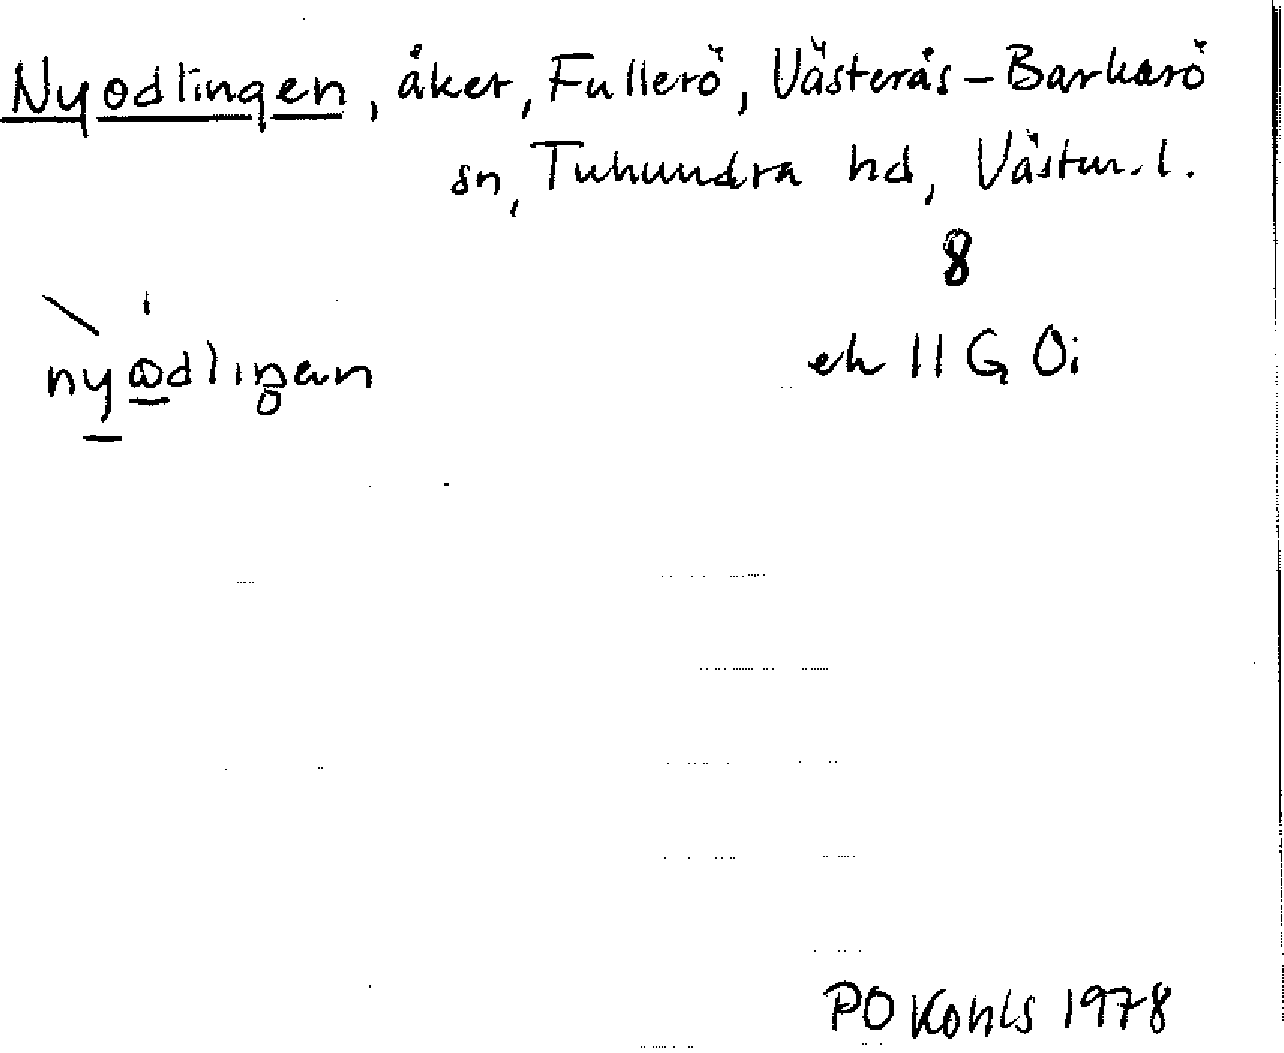 Nyodlingen, åker, Fullerö, Västerås-Barkarö
sn, Tuhundra hd, Västm. l.
8
nyodlingan
ek 11 G 0i
PO Kohls 1978